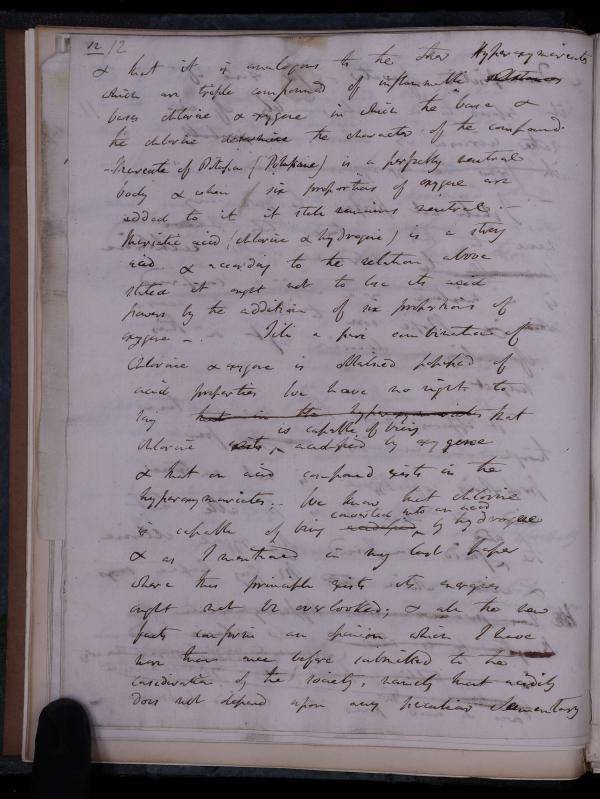 12 12
& that it is analogous to the other Hyperoxymuriates
which are triple compounds of inflammable
bases chlorine & oxygene in which the base &
the chlorine determine the character of the compound.
- Muriate of Potassa (Potassane) is a perfectly neutral
body & when six proportions of oxygene are
added to it it still remains neutral. -
Muriatic acid (chlorine & hydrogene) is a strong
acid & according to the relation above
stated it ought not to lose its acid
powers by the addition of six proportions of
oxygene - . Till a pure combination of
Chlorine & oxygene is obtained possessed of
acid properties we have no right to
say that in the hyperoxymuriates that
is capable of being
chlorine exists acidified by oxygene
& that an acid compound exists in the
hyperoxymuriates. - We know that chlorine
converted into an acid
is capable of being acidified by hydrogene
& as I mentioned in my last paper
where this principle exists its energies
ought not be overlooked; & all the new
facts confirm an opinion which I have
more than once before submitted to the
consideration of the society, namely that acidity
does not depend upon any peculiar elementary